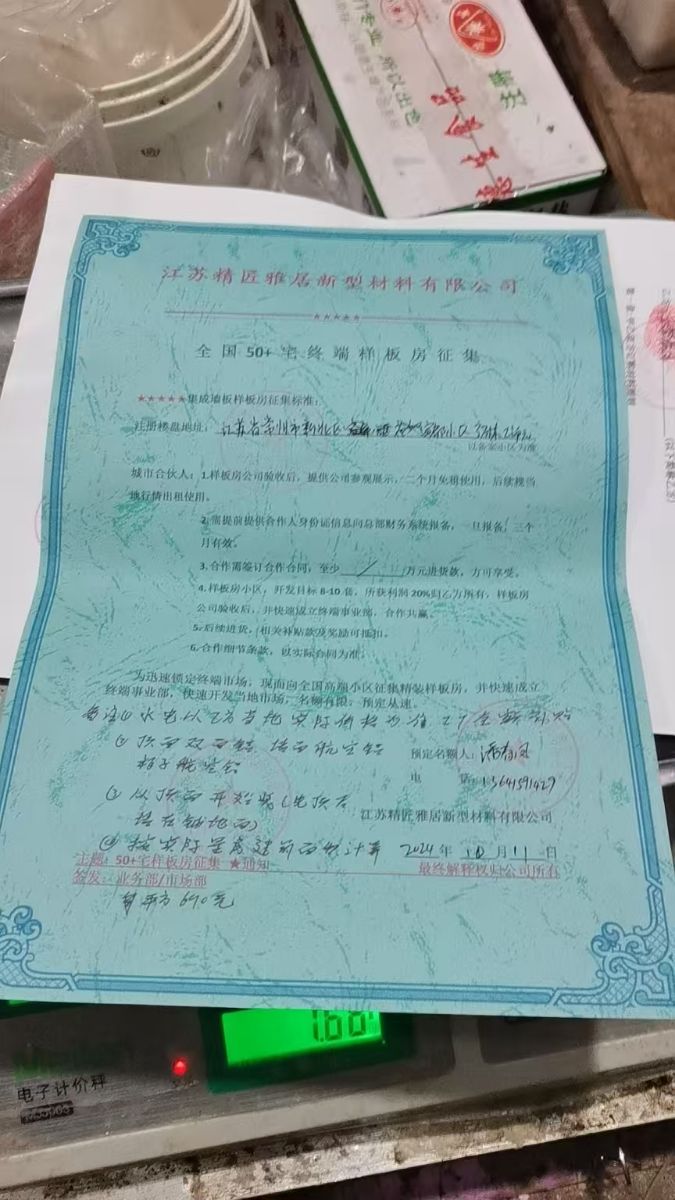 食品
江苏精匠雅居新型材料有限公司
★★★★★
全国50+宅终端样板房征集
★★★★★集成墙板样板房征集标准：
注册楼盘地址：江苏省常州市新北区
以备案小区为准
城市合伙人：1.样板房公司验收后，提供公司参观展示，二个月免租使用，后续按当
地行情出租使用。
2.需提前提供合作人身份证信息向总部财务系统报备，一旦报备，三个
月有效。
3.合作需签订合作合同，至少 / 万元进货款，方可享受。
4.样板房小区，开发目标8-10套，所获利润20%归乙方所有，样板房
公司验收后，并快速成立终端事业部，合作共赢。
5.后续进货，相关补贴款及奖励可抵扣。
6.合作细节条款，以实际合同为准。
为迅速锁定终端市场，现面向全国高端小区征集精装样板房，并快速成立
终端事业部，快速开发当地市场，名额有限，预定从速。
备注①水电以乙方当地实际价格为准
②顶面双面铝 墙面航空铝
柜子航空铝
预定名额人：
电 话：13641591429
③从顶面开始装（先顶后
墙在铺地面）
江苏精匠雅居新型材料有限公司
④按实际量房建筑面积计算
2024年10月11日
主题：50+宅样板房征集 ★通知
最终解释权归公司所有
签发：业务部/市场部
每平方690元
1.68
电子计价秤